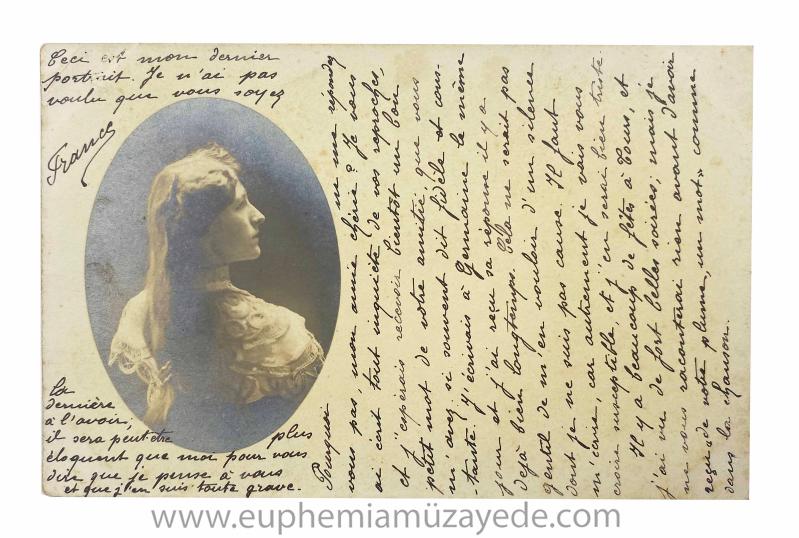 Ceci est mon dernier
portrait. Je n'ai pas
voulu que vous soyez
France
La
dernière
à l'avoir,
il sera peut-être plus
éloquent que moi pour vous
dire que je pense à vous
et que j'en suis toute grave.
Pourquoi ne me répondez
vous pas, mon amie chérie? Je vous
ai écrit tout inquiète de vos reproches,
et j'espérais recevoir bientôt un bon
petit mot de votre amitié que vous
m'avez si souvent dit fidèle et cons-
tante. J'écrivais à Germaine le même
jour et j'ai reçu sa réponse il y a
déjà bien longtemps. Cela ne serait pas
gentil de m'en vouloir d'un silence
dont je ne suis pas cause. Il faut
m'écrire, car autrement je vais vous
croire susceptible, et j'en serai bien triste.
Il y a beaucoup de fêtes à Tours, et
j'ai vu de fort belles soirées; mais je
ne vous raconterai rien avant d'avoir
reçu « de votre plume, un mot » comme
dans la chanson.
www.euphemiamüzayede.com